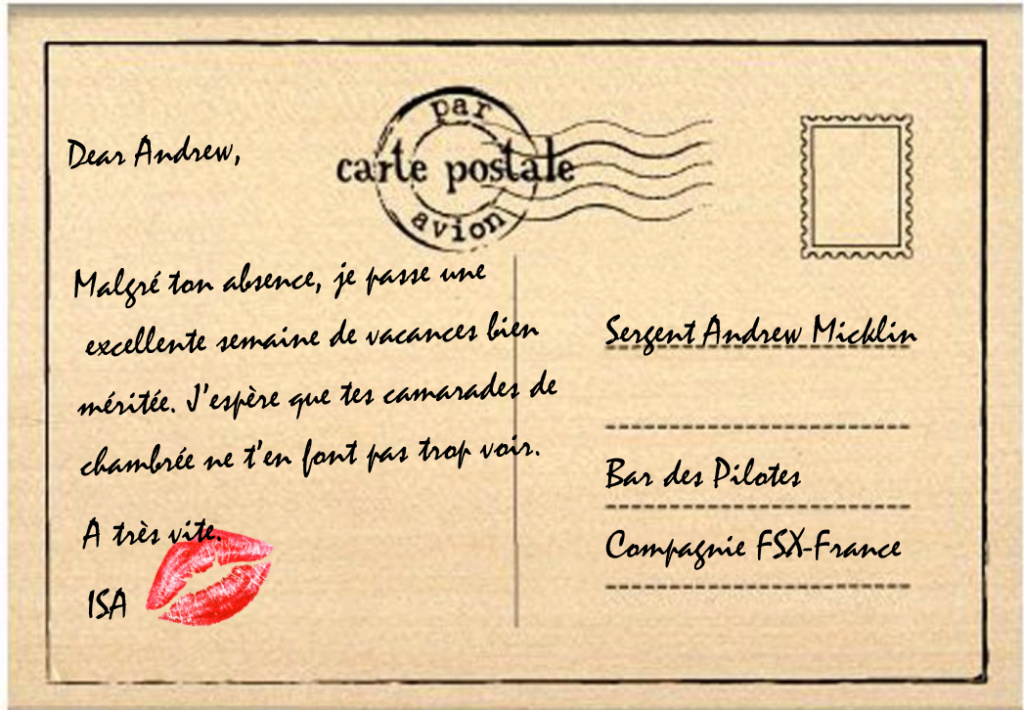 par
carte postale
avion
Dear Andrew,
Malgré ton absence, je passe une
excellente semaine de vacances bien
méritée. J'espère que tes camarades de
chambrée ne t'en font pas trop voir.
A très vite.
ISA
Sergent Andrew Micklin
Bar des Pilotes
Compagnie FSX-France